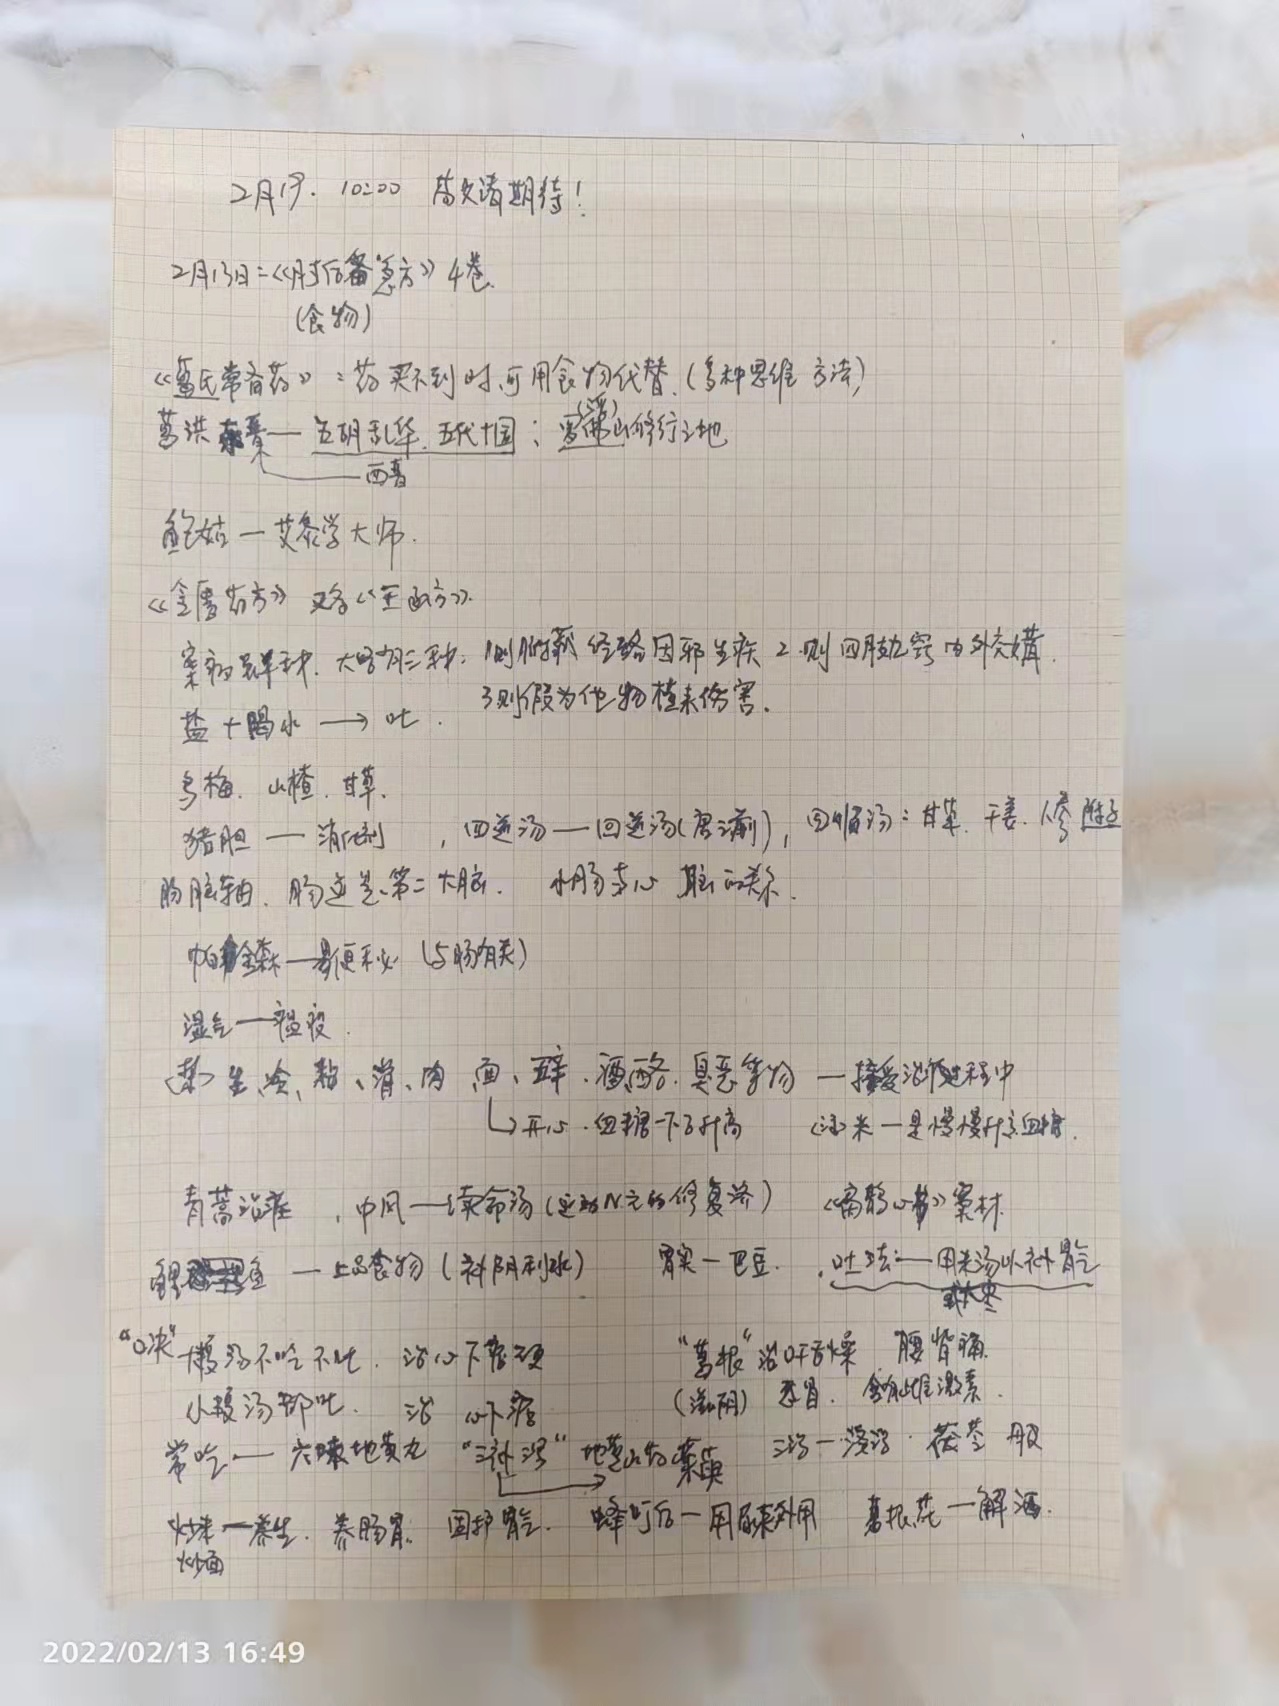 2月19. 10:00 文清期待!
2月13日:《肘后备急方》4卷.
(食物)
《葛氏常备药》:药买不到时,可用食物代替.(多种思维方法)
葛洪 东晋— 五胡乱华. 五代十国; 修行之地
—西晋
鲍姑—艾灸学大师.
《金匮药方》 又名《玉函方》.
案病 大略有三种: 1则 经络因邪生疾 2.则四肢九窍内外交媾.
3则假为他物横来伤害.
盐+喝水 → 吐.
乌梅. 山楂. 甘草.
猪胆 — 消化剂 , 四逆汤—回逆汤(唐之前), 回顺汤:甘草. 干姜. 人参 附子
肠脑轴. 肠道是第二大脑. 小肠与心 脑的关系.
帕金森—是便秘 (与肠有关)
湿气—瘟疫.
<禁> 生、冷、粘、滑、肉、面、五辛、酒、酪、臭恶等物 —接受治疗过程中
↳开心. 血糖一下子升高 米—是慢慢升高血糖.
青蒿治疟 , 中风—续命汤(运动N元的修复济) 《扁鹊心书》窦材
鲤鱼 —上品食物(补阴利水) 胃实—巴豆. .吐法:—用米汤以补胃气
或大枣
“口决” 大 汤不吃不吐. 治心下 硬 “葛根”治口干舌燥 腰背痛.
小 汤即吐. 治 心下 (滋阴) 养胃. 含有雌激素.
常吃— 六味地黄丸 “三补三泻” 地黄山药茱萸 三泻—泽泻. 茯苓 丹皮
炒米—养生. 养肠胃. 固护胃气. 蜂叮后—用尿来外用 葛根花—解酒.
炒面
2022/02/13 16:49